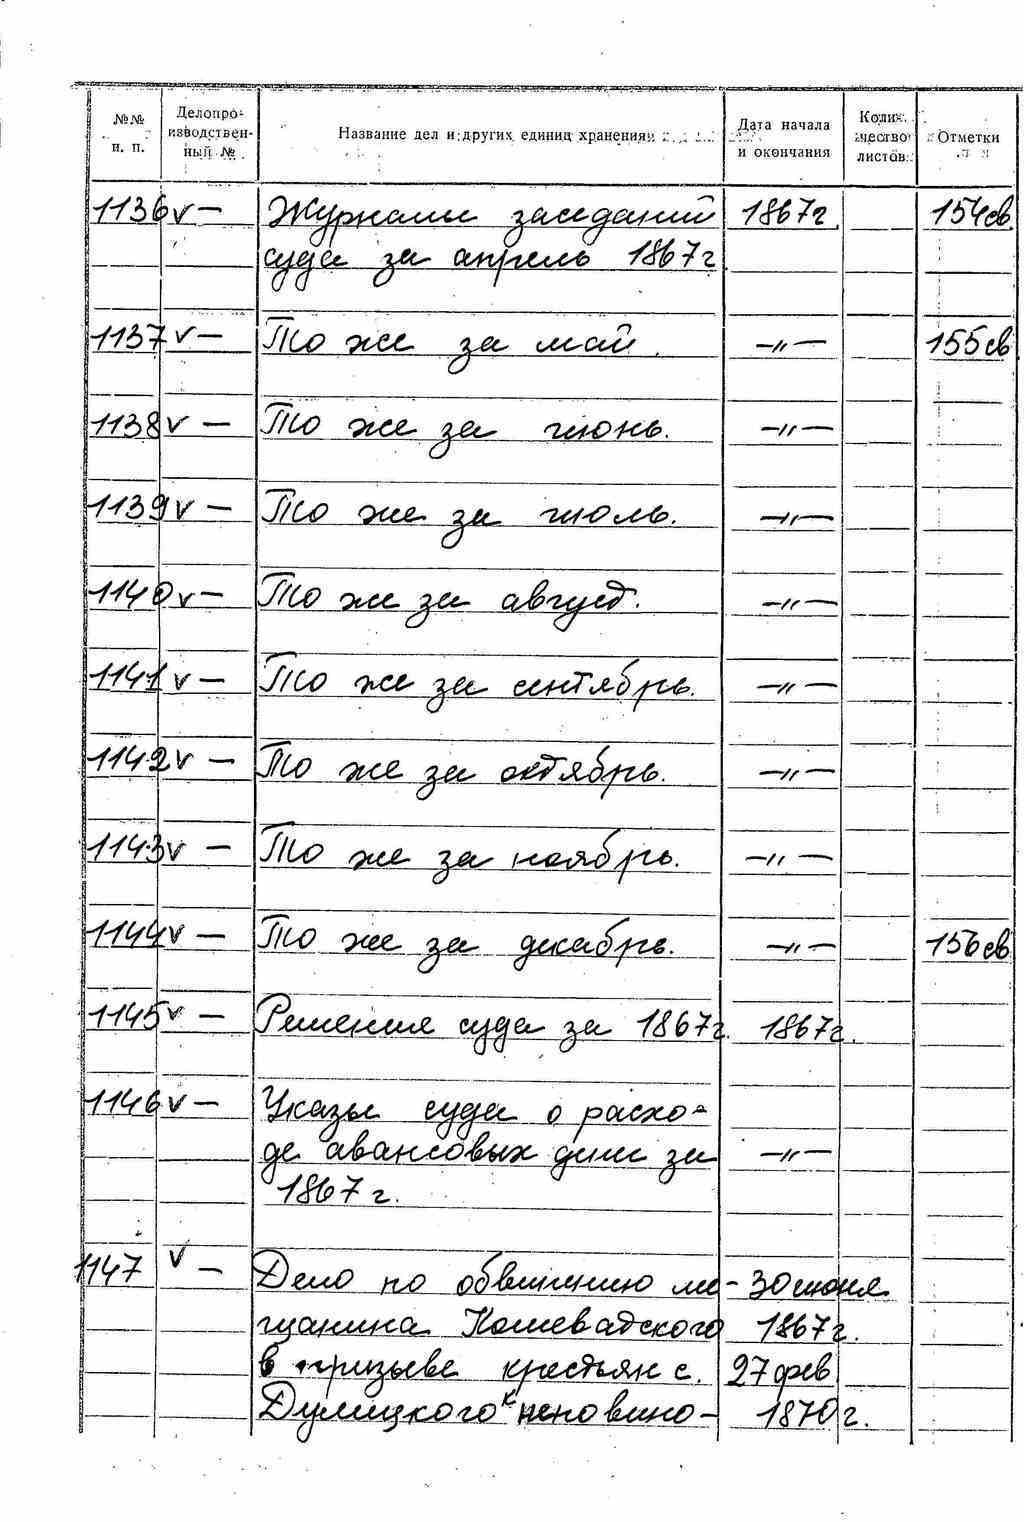 №№ п. п. Делопроизводственный № Название дел и других единиц хранения Дата начала и окончания Количество листов Отметки
1136 v — Журналы заседаний 1867г. 154св.
суда за апрель 1867г
1137 v — То же за май. —"— 155св
1138 v — То же за июнь. —"—
1139 v — То же за июль. —"—
1140 v — То же за август. —"—
1141 v — То же за сентябрь. —"—
1142 v — То же за октябрь. —"—
1143 v — То же за ноябрь. —"—
1144 v — То же за декабрь. —"— 156св
1145 v — Решения суда за 1867г. 1867г.
1146 v — Указы суда о расхо-
де авансовых дел за —"—
1867 г.
1147 v — Дело по обвинению ме- 30 июня
щанина Кошевадского 1867г.
в призыве крестьян с. 27 фев
Дулицкого к неповино- 1870 г.